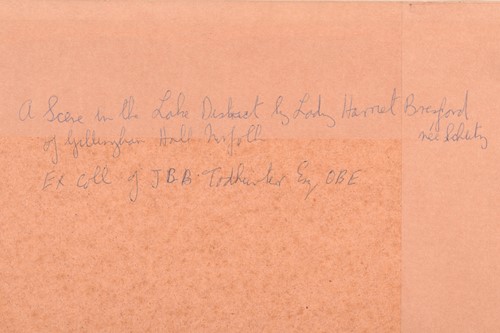 A Scene in the Lake District by Lady Harriet
of Gillingham Hall Norfolk née
Ex Coll of J.B.B. Todhunter Esq, OBE